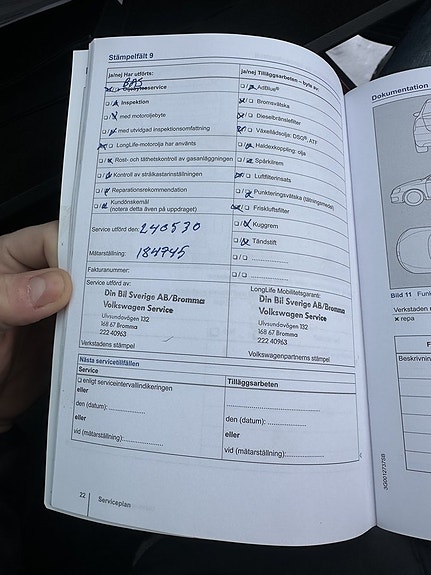 Stämpelfält 9
ja/nej Har utförts:
BAS
service
❏ / ❏ Inspektion
❏ / ❏ med motoroljebyte
❏ / ❏ med utvidgad inspektionsomfattning
❏ / ❏ LongLife-motorolja har använts
❏ / ❏ Rost- och täthetskontroll av gasanläggningen
❏ / ❏ Kontroll av strålkastarinställningen
❏ / ❏ Reparationsrekommendation
❏ / ❏ Kundönskemål
(notera detta även på uppdraget)
Service utförd den: 240530
Mätarställning: 184745
Fakturanummer:
Service utförd av:
Din Bil Sverige AB/Bromma
Volkswagen Service
Ulvsundavägen 132
168 67 Bromma
222 40963
Verkstadens stämpel
ja/nej Tilläggsarbeten – byte av:
❏ / ❏ AdBlue®
❏ / ❏ Bromsvätska
❏ / ❏ Dieselbränslefilter
❏ / ❏ Växellådsolja: DSG® ATF
❏ / ❏ Haldexkoppling: olja
❏ / ❏ Spärkilrem
❏ / ❏ Luftfilterinsats
❏ / ❏ Punkteringsvätska (tätningsmedel)
❏ / ❏ Friskluftsfilter
❏ / ❏ Kuggrem
❏ / ❏ Tändstift
❏ / ❏ ......................
❏ / ❏ ......................
LongLife Mobilitetsgaranti:
Din Bil Sverige AB/Bromma
Volkswagen Service
Ulvsundavägen 132
168 67 Bromma
222 40963
Volkswagenpartnerns stämpel
Nästa servicetillfällen
Service
❏ enligt serviceintervallindikeringen
eller
den (datum): ......................
eller
vid (mätarställning): ......................
Tilläggsarbeten
......................
den (datum): ......................
eller
vid (mätarställning): ......................
22 Serviceplan
Dokumentation
Bild 11 Funk
Verkstaden
× repa
F
Beskrivning
3G0012737SB